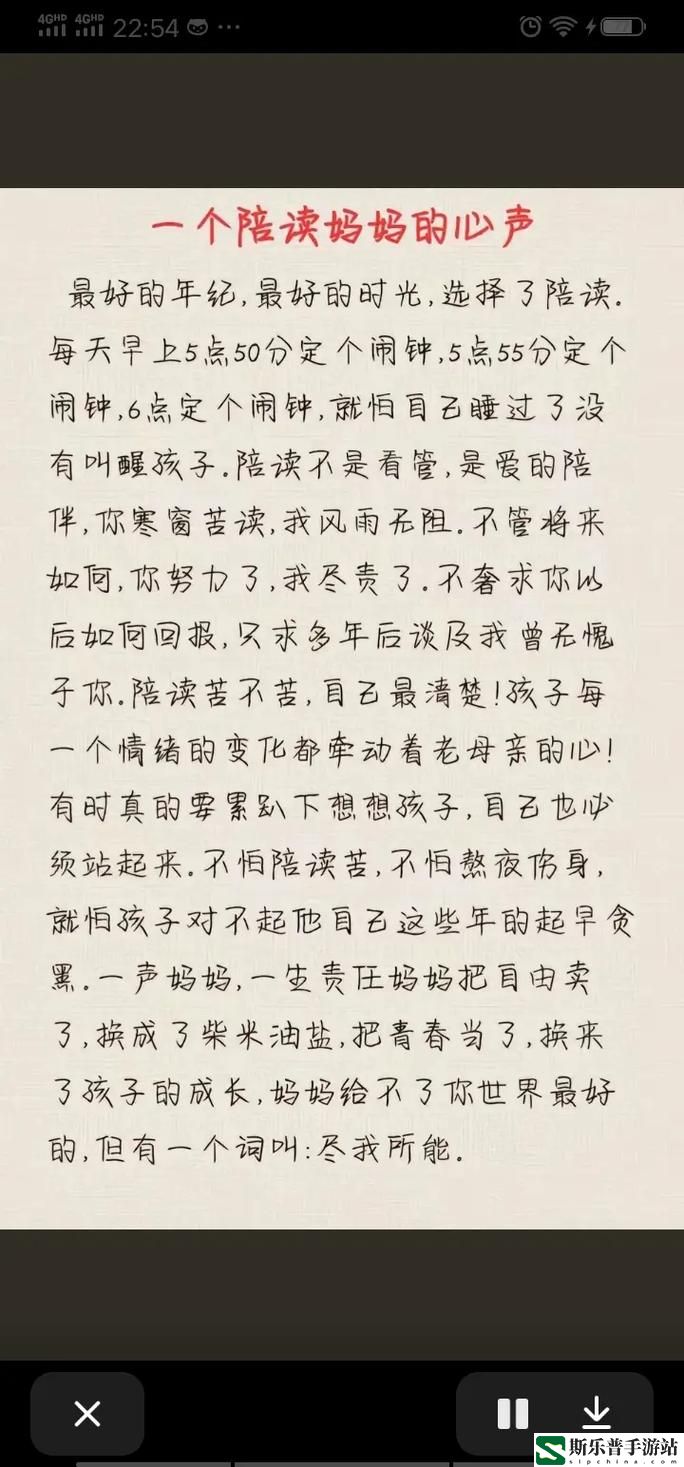 4GHD 4GHD 22:54 ...
一个陪读妈妈的心声
最好的年纪,最好的时光,选择了陪读.
每天早上5点50分定个闹钟,5点55分定个
闹钟,6点定个闹钟,就怕自己睡过了没
有叫醒孩子.陪读不是看管,是爱的陪
伴,你寒窗苦读,我风雨无阻.不管将来
如何,你努力了,我尽责了.不奢求你以
后如何回报,只求多年后谈及我曾无愧
于你.陪读苦不苦,自己最清楚!孩子每
一个情绪的变化都牵动着老母亲的心!
有时真的要累趴下想想孩子,自己也必
须站起来.不怕陪读苦,不怕熬夜伤身,
就怕孩子对不起他自己这些年的起早贪
黑.一声妈妈,一生责任妈妈把自由卖
了,换成了柴米油盐,把青春当了,换来
了孩子的成长,妈妈给不了你世界最好
的,但有一个词叫:尽我所能.
斯乐普手游站
slpchina.com